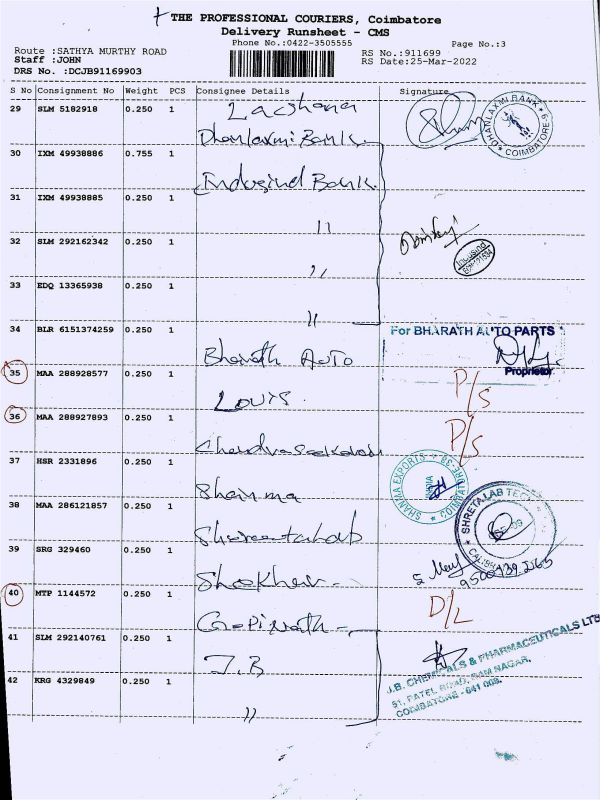 THE PROFESSIONAL COURIERS, Coimbatore
Delivery Runsheet - CMS
Phone No.:0422-3505555
Page No.:3
Route :SATHYA MURTHY ROAD
RS No.:911699
Staff :JOHN
RS Date:25-Mar-2022
DRS No. :DCJB91169903
S No Consignment No Weight PCS Consignee Details Signature
29 SLM 5182918 0.250 1 Lacshana
DHANLAXMI BANK COIMBATORE
Dhanlaxmi Bank
30 IXM 49938886 0.755 1
Indusind Bank
31 IXM 49938885 0.250 1
"
32 SLM 292162342 0.250 1
"
33 EDQ 13365938 0.250 1
"
34 BLR 6151374259 0.250 1
For BHARATH AUTO PARTS
Proprietor
Bharath Auto
35 MAA 288928577 0.250 1 P/S
Louis
36 MAA 288927893 0.250 1 P/S
37 HSR 2331896 0.250 1
SHANMA EXPORTS
Shanma
38 MAA 286121857 0.250 1
SHRETALAB
39 SRG 329460 0.250 1
Shekhar
40 MTP 1144572 0.250 1 D/L
Gopinath
41 SLM 292140761 0.250 1
J.B
J.B. CHEMICALS & PHARMACEUTICALS LTD
51, PATEL ROAD, RAM NAGAR,
COIMBATORE - 641 009.
42 KRG 4329849 0.250 1
"